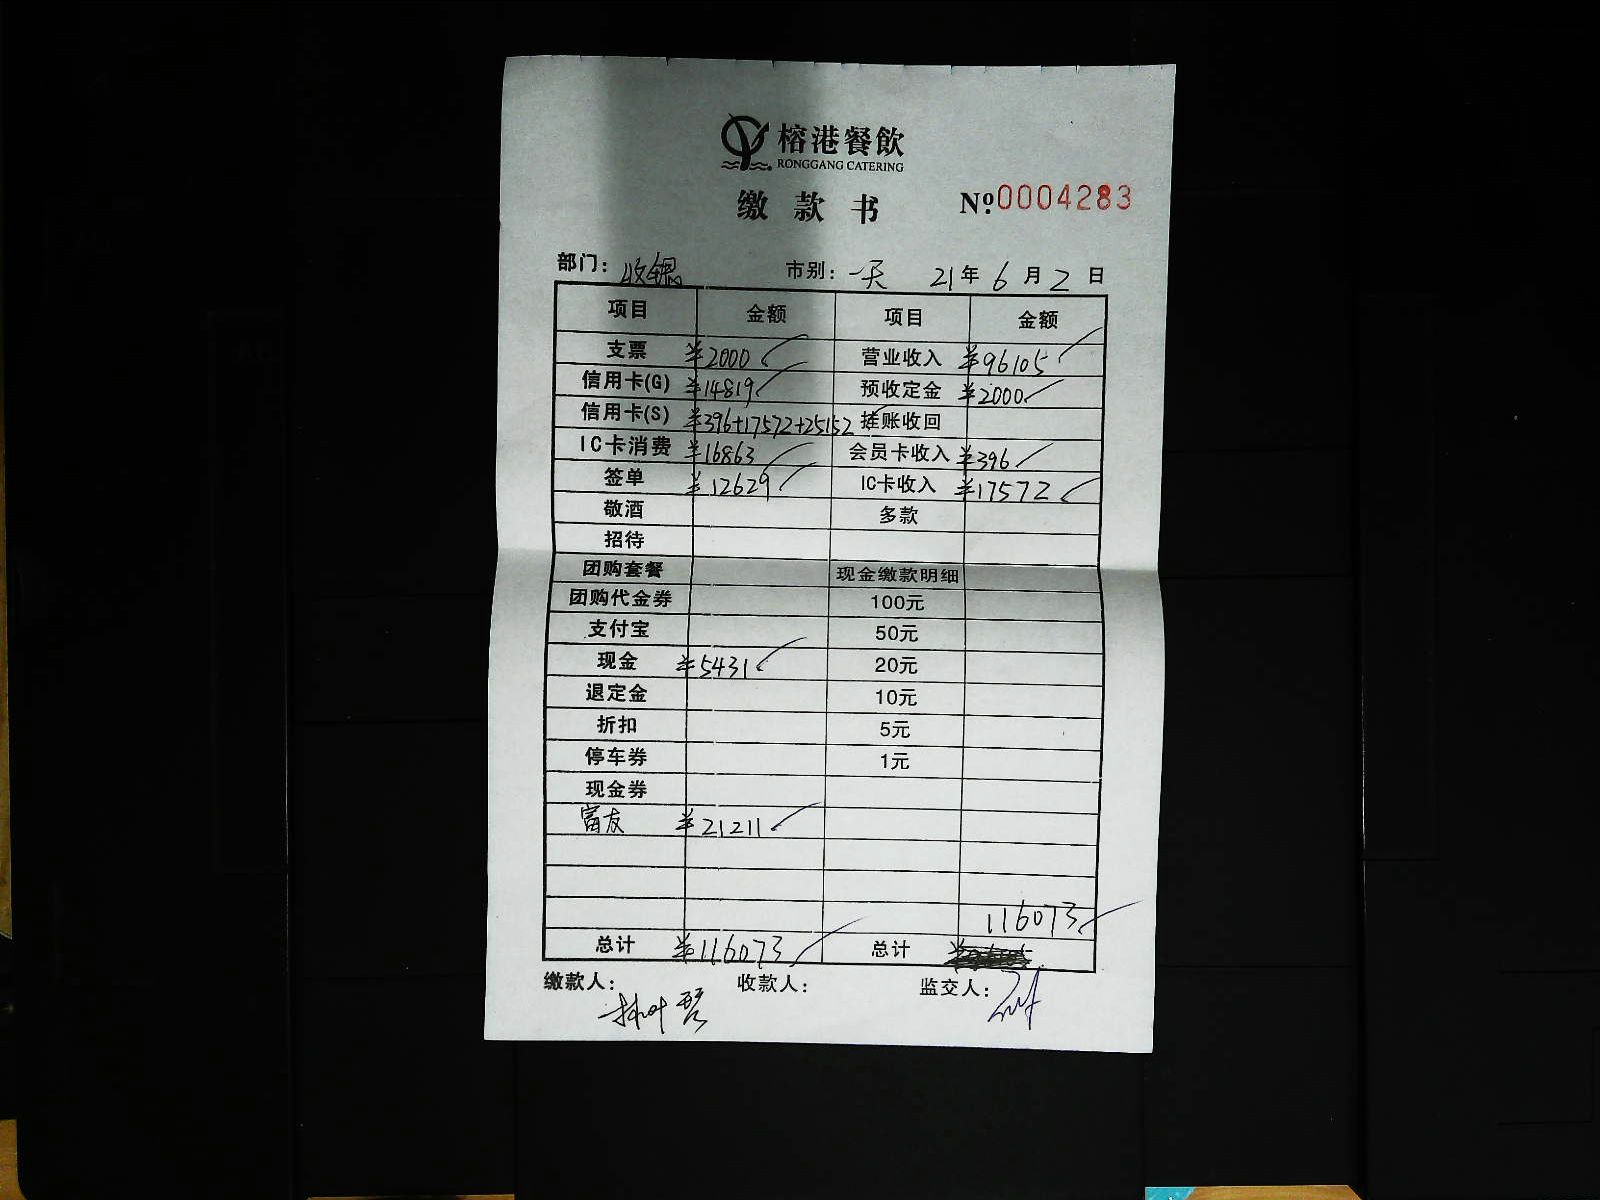 榕港餐飲
RONGGANG CATERING
缴款书 Nº.0004283
部门：收银 市别：一天 21年6月2日
项目 金额 项目 金额
支票 ¥2000 营业收入 ¥96105
信用卡(G) ¥14819 预收定金 ¥2000
信用卡(S) ¥396+17572+25152 挂账收回
IC卡消费 ¥16863 会员卡收入 ¥396
签单 ¥12629 IC卡收入 ¥17572
敬酒 多款
招待
团购套餐 现金缴款明细
团购代金券 100元
支付宝 50元
现金 ¥5431 20元
退定金 10元
折扣 5元
停车券 1元
现金券
富友 ¥21211
116073
总计 ¥116073 总计
缴款人： 收款人： 监交人：